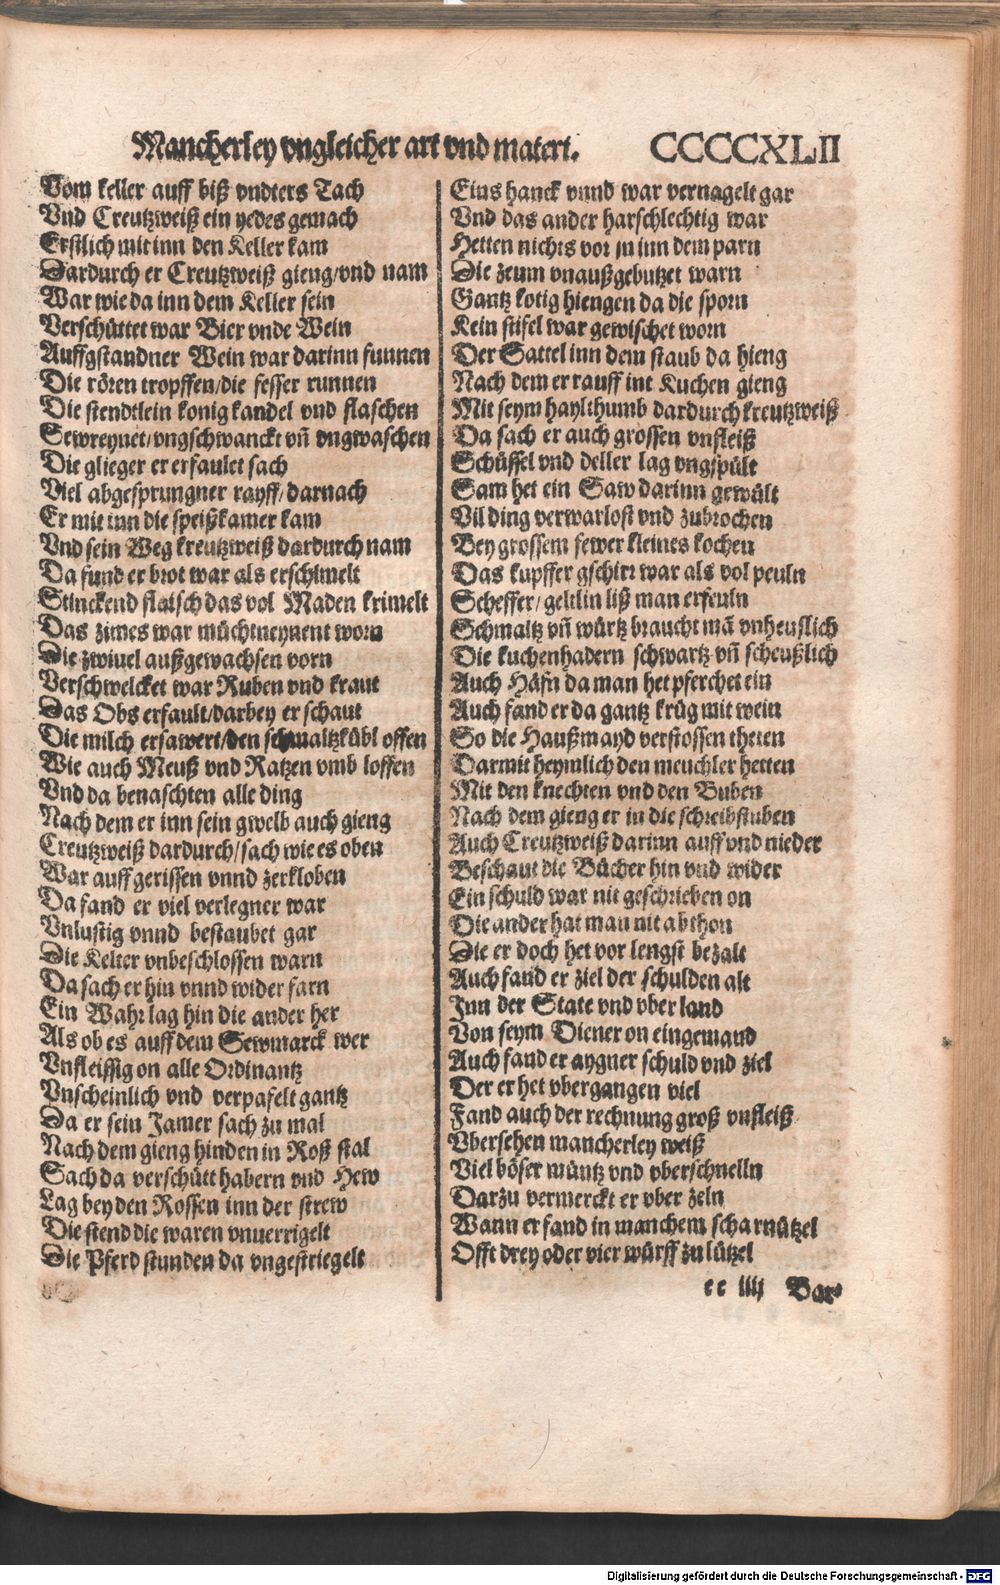 Mancherley vngleicher art vnd materi. CCCCXLII
Vom keller auff biß vndters Tach
Vnd Creutzweiß ein yedes gemach
Erstlich mit inn den Keller kam
Dardurch er Creutzweiß gieng/vnd nam
War wie da inn dem Keller sein
Verschüttet war Bier vnde Wein
Auffgstandner Wein war darinn funnen
Die rören tropffen/die fesser runnen
Die stendtlein konig kandel vnd flaschen
Sewreynet/vngschwanckt vñ vngwaschen
Die glieger er erfaulet sach
Viel abgesprungner rayff/darnach
Er mit inn die speißkamer kam
Vnd sein Weg kreutzweiß dardurch nam
Da fund er brot war als erschimelt
Stinckend flaisch das vol Maden krimelt
Das zimes war müchtneynent worn
Die zwiuel außgewachsen vorn
Verschwelcket war Ruben vnd kraut
Das Obs erfault/darbey er schaut
Die milch ersawert/den schmaltzkübl offen
Wie auch Meuß vnd Ratzen vmb loffen
Vnd da benaschten alle ding
Nach dem er inn sein gwelb auch gieng
Creutzweiß dardurch/sach wie es oben
War auff gerissen vnnd zerkloben
Da fand er viel verlegner war
Vnlustig vnnd bestaubet gar
Die Kelter vnbeschlossen warn
Da sach er hin vnnd wider farn
Ein Wahr lag hin die ander her
Als ob es auff dem Sewmarck wer
Vnfleissig on alle Ordinantz
Vnscheinlich vnd verpafelt gantz
Da er sein Jamer sach zu mal
Nach dem gieng hinden in Roß stal
Sach da verschütt habern vnd Hew
Lag bey den Rossen inn der strew
Die stend die waren vnuerrigelt
Die Pferd stunden da vngestriegelt
Eins hanck vnnd war vernagelt gar
Vnd das ander harschlechtig war
Hetten nichts vor jn inn dem parn
Die zeum vnaußgebutzet warn
Gantz kotig hiengen da die sporn
Kein stifel war gewischet worn
Der Sattel inn dem staub da hieng
Nach dem er rauff int Kuchen gieng
Mit seym haylthumb dardurch kreutzweiß
Da sach er auch grossen vnfleiß
Schüssel vnd deller lag vngspült
Sam het ein Saw darinn gewült
Vil ding verwarlost vnd zubrochen
Bey grossem fewer kleines kochen
Das kupffer gschirr war als vol peuln
Scheffer/geltlin liß man erfeuln
Schmaltz vñ würtz braucht mã vnheuslich
Die kuchenhadern schwartz vñ scheußlich
Auch Häfn da man het pferchet ein
Auch fand er da gantz krüg mit wein
So die Haußmayd verstossen theten
Darmit heymlich den meuchler hetten
Mit den knechten vnd den Buben
Nach dem gieng er in die schreibstuben
Auch Creutzweiß darinn auff vnd nieder
Beschaut die Bücher hin vnd wider
Ein schuld war nit geschrieben on
Die ander hat man nit abthon
Die er doch het vor lengst bezalt
Auch fand er ziel der schulden alt
Inn der State vnd vber land
Von seym Diener on eingemand
Auch fand er aygner schuld vnd ziel
Der er het vbergangen viel
Fand auch der rechnung groß vnfleiß
Vbersehen mancherley weiß
Viel böser müntz vnd vberschnelln
Darzu vermerckt er vber zeln
Wann er fand in manchem scharnützel
Offt drey oder vier würff zu lützel
ee iiij Bar
Digitalisierung gefördert durch die Deutsche Forschungsgemeinschaft - DFG